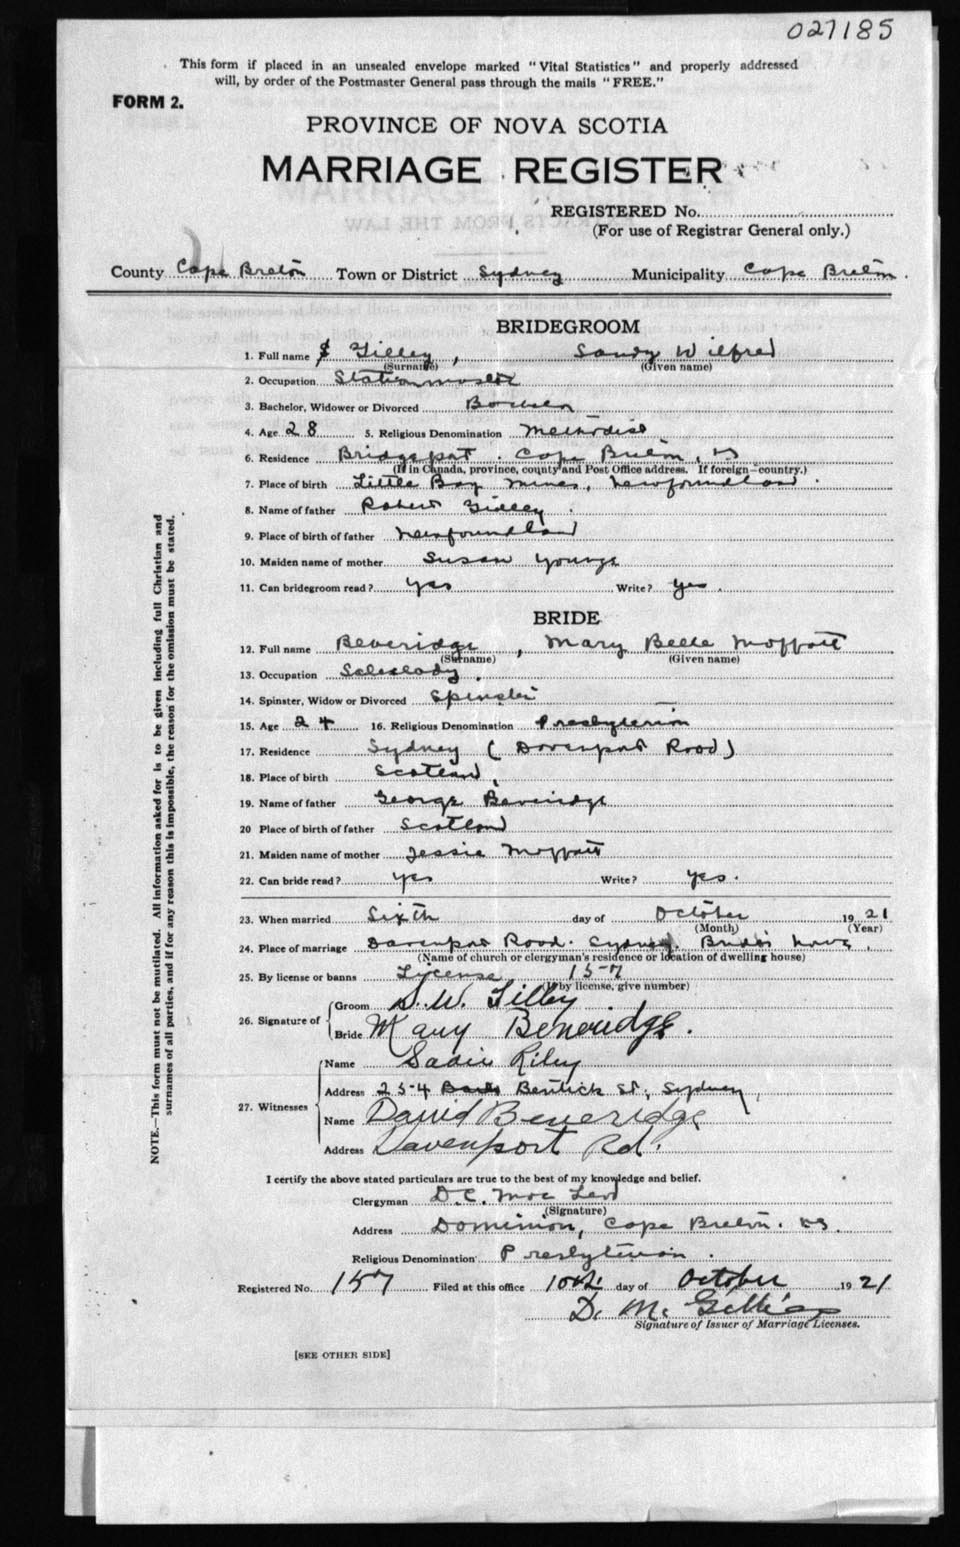 027185
This form if placed in an unsealed envelope marked "Vital Statistics" and properly addressed
will, by order of the Postmaster General pass through the mails "FREE."
FORM 2.
PROVINCE OF NOVA SCOTIA
MARRIAGE REGISTER
REGISTERED No.
(For use of Registrar General only.)
County Cape Breton Town or District Sydney Municipality Cape Breton
BRIDEGROOM
1. Full name Tilley, Sandy Wilfred
(Surname) (Given name)
2. Occupation Stationmaster
3. Bachelor, Widower or Divorced Bachelor
4. Age 28 5. Religious Denomination Methodist
6. Residence Bridgeport. Cape Breton, NS
(If in Canada, province, county and Post Office address. If foreign—country.)
7. Place of birth Little Bay Mines, Newfoundland.
8. Name of father Robert Tilley
9. Place of birth of father Newfoundland
10. Maiden name of mother Susan Young
11. Can bridegroom read? Yes Write? Yes.
BRIDE
12. Full name Beveridge, Mary Belle Moffatt
(Surname) (Given name)
13. Occupation Saleslady.
14. Spinster, Widow or Divorced Spinster
15. Age 24 16. Religious Denomination Presbyterian
17. Residence Sydney (Davenport Road)
18. Place of birth Scotland
19. Name of father George Beveridge
20 Place of birth of father Scotland
21. Maiden name of mother Jessie Moffatt
22. Can bride read? Yes Write? Yes.
23. When married Sixth day of October 1921
(Month) (Year)
24. Place of marriage Davenport Road. Sydney. Bride's home.
(Name of church or clergyman's residence or location of dwelling house)
25. By license or banns License 157
(If by license, give number)
26. Signature of Groom S. W. Tilley
Bride Mary Beveridge.
27. Witnesses Name Sadie Riley
Address 254 Bentick St, Sydney
Name David Beveridge
Address Davenport Rd.
I certify the above stated particulars are true to the best of my knowledge and belief.
Clergyman D.C. Mac Leod
(Signature)
Address Dominion, Cape Breton. NS.
Religious Denomination Presbyterian.
Registered No. 157 Filed at this office 10th day of October 1921
D. Mc Gillies
Signature of Issuer of Marriage Licenses.
[SEE OTHER SIDE]
NOTE.—This form must not be mutilated. All information asked for is to be given including full Christian and
surnames of all parties, and if for any reason this is impossible, the reason for the omission must be stated.